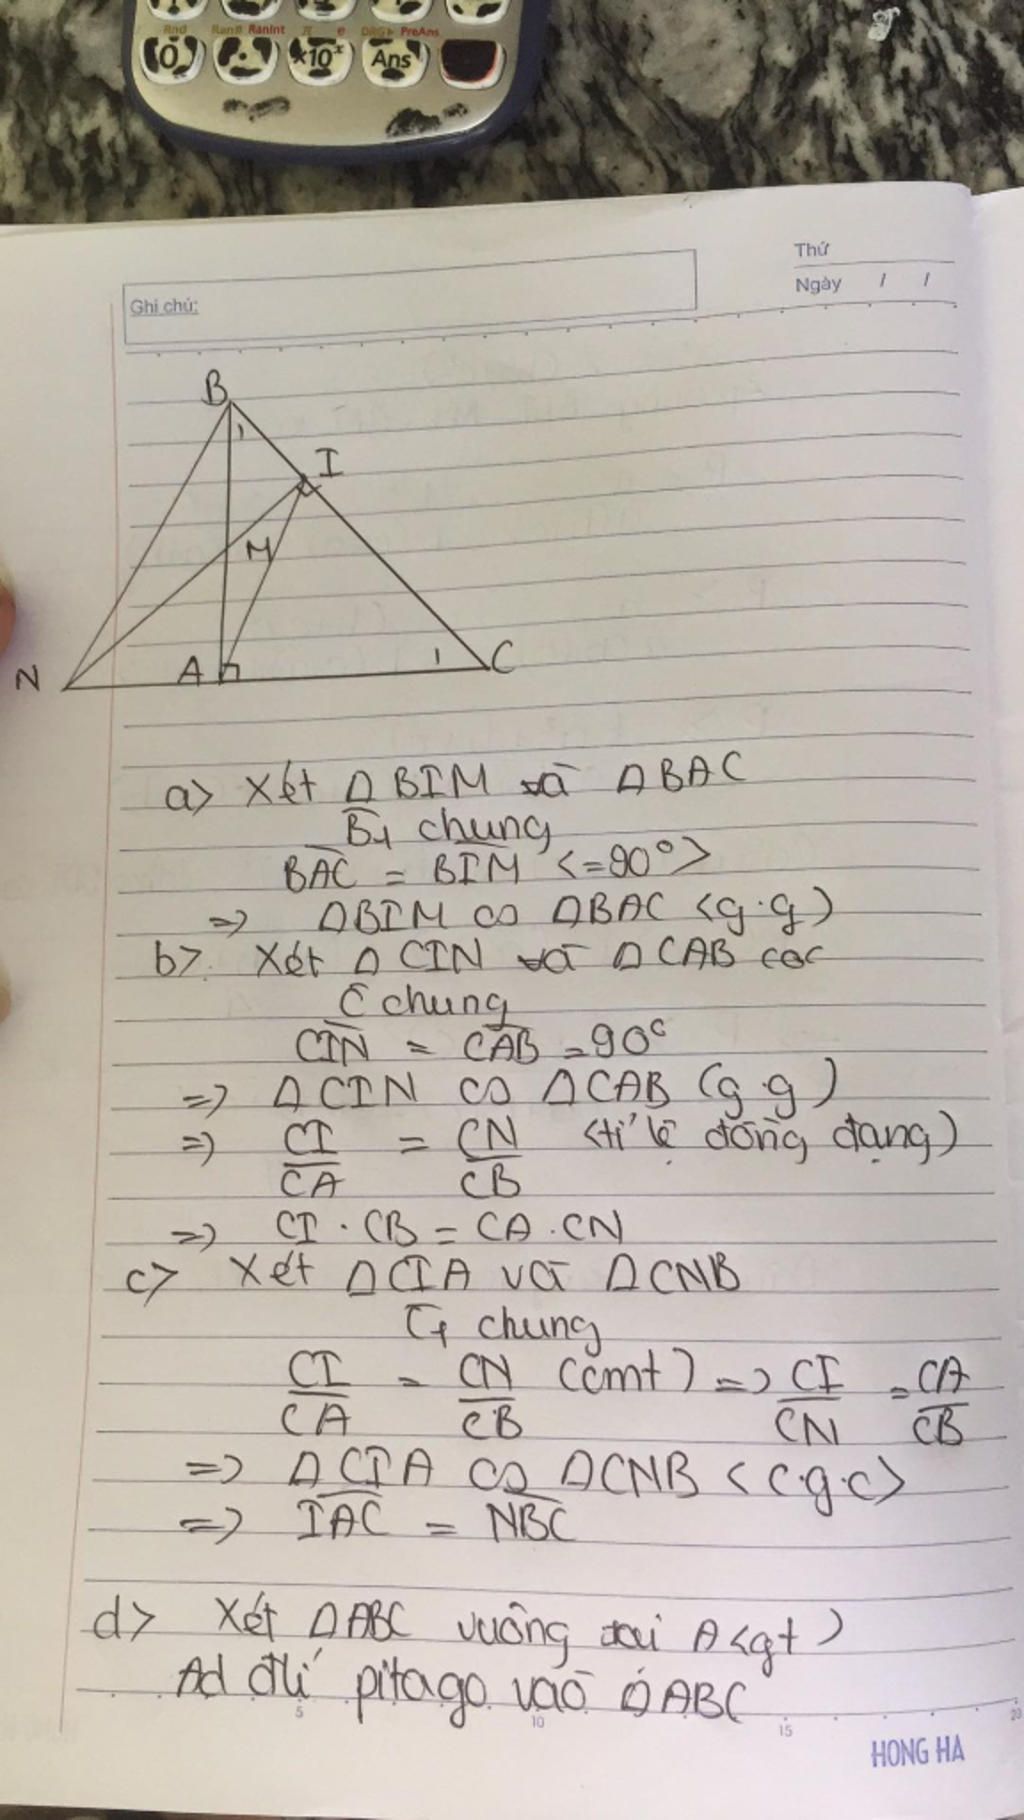 Rnd Ran# RanInt π e DRG▸ PreAns
0 . ×10ˣ Ans
Thứ
Ngày / /
Ghi chú:
B
1
I
M
N A 1 C
a> Xét △BIM và △BAC
B̂₁ chung
BAC = BIM <=90°>
=> △BIM ∽ △BAC <g.g)
b>. Xét △CIN và △CAB có
Ĉ chung
CIN = CAB =90°
=> △CIN ∽ △CAB (g.g)
=> CI/CA = CN/CB <tỉ lệ đồng dạng)
=> CI.CB = CA.CN
c> Xét △CIA và △CNB
Ĉ₁ chung
CI/CA = CN/CB (cmt) => CI/CN = CA/CB
=> △CIA ∽ △CNB <c.g.c>
=> IAC = NBC
d> Xét △ABC vuông tại A<gt)
Ad đlí pitago vào △ABC
5 10 15 20
HONG HA